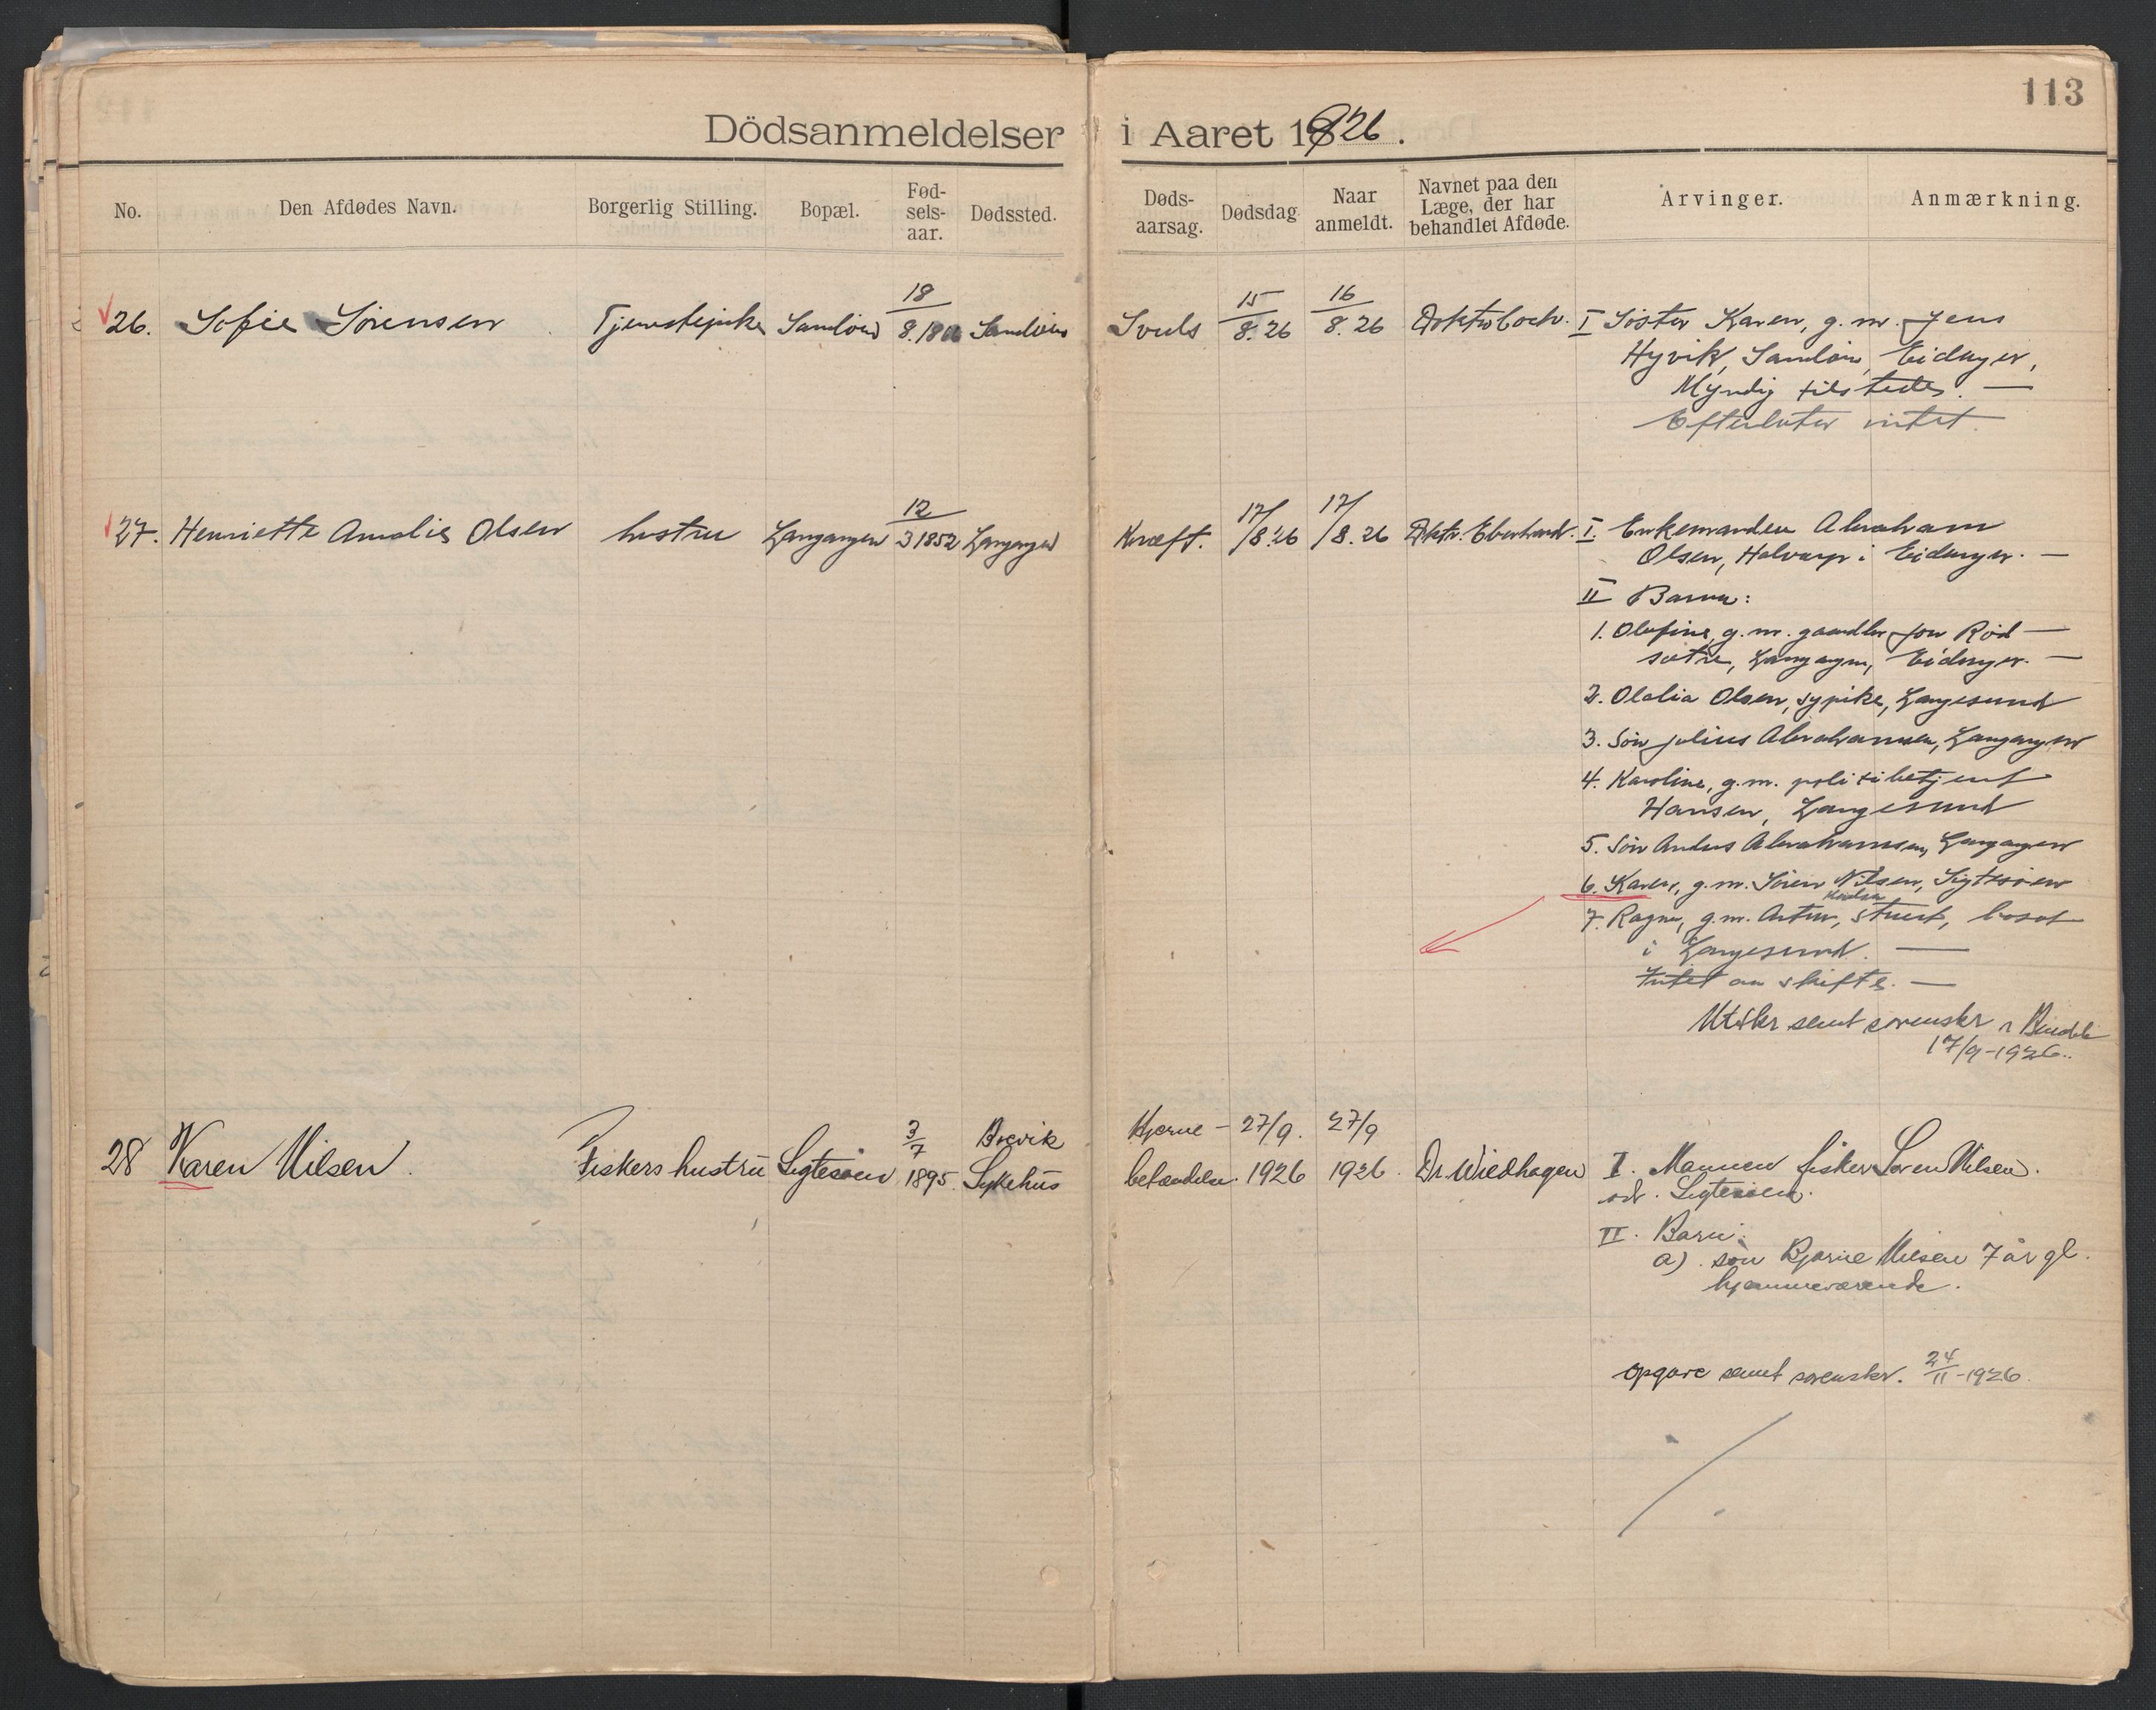 113
Dödsanmeldelser i Aaret 1926.
No. Den Afdødes Navn. Borgerlig Stilling. Bopæl. Fød-sels-aar. Dødssted. Døds-aarsag. Dødsdag Naar anmeldt. Navnet paa den Læge, der har behandlet Afdøde. Arvinger. Anmærkning.
26. Sofie Sörensen Tjenestepike 18/8. 15/8. 26 16/8. 26 I Söster Karen, g. m. Jens
Hyvik, Eidanger,
Myndig tilstede. —
Efterlater intet.
27. Henriette Amalie Olsen hustru Langangen 12/3 1852 Langangen Kræft. 17/8. 26 17/8. 26 Doktr. Eberhard. I. Enkemanden Abraham
Olsen, Halvarp i Eidanger. —
II Barn:
1. Olufine, g. m. gaardbr Jon Röd —
sætre, Langangen, Eidanger. —
2. Olalia Olsen, sypike, Langesund
3. Sön Julius Abrahamsen, Langangen
4. Karoline, g. m. politibetjent
Hansen, Langesund
5. Sön Anders Abrahamsen, Langangen
6. Karen, g. m. Sören Nilsen, Sigtesöen
7. Ragna, g. m. Artur, stuert, bosat
i Langesund. —
Intet an skifte. —
Utskr sent sorenskr
17/9-1926.
28 Karen Nilsen. Fiskers hustru Sigtesöen 3/7 1895. Brevik Sykehus Hjerne-betændelse. 27/9. 1926 27/9 1926 Dr. Wiedhagen I. Mannen fisker Soren Nilsen.
adr. Sigtesöen.
II. Barn:
a). sön Bjarne Nilsen 7 år gl.
hjemmeværende.
Opgave sent sorenskr. 24/11-1926